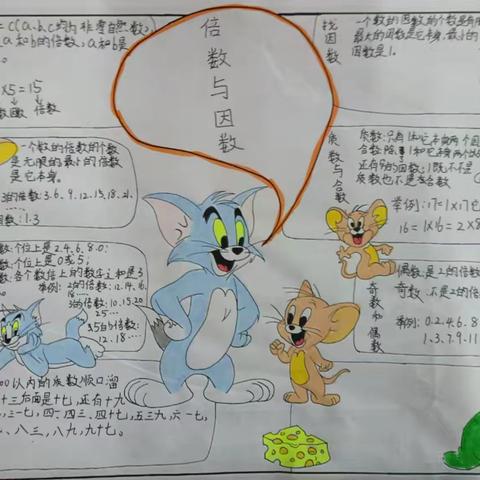 =c(a.b.c均为非零自然数),
a和b的倍数,a和b是
×5=15
数 因数 倍数
一个数的倍数的个数
是无限的最小的倍数
是它本身。
3的倍数:3.6.9.12.15.18.21.
因数:1.3
数:个位上是2.4.6.8.0;
数:个位上是0或5;
数:各个数位上的数字之和是3
举例:2的倍数:12.14.16.
18……
5的倍数:10.15.20
25……
3的倍数:
12.18……
00以内的质数顺口溜
十三后面是十七,还有十九
,三一七,四一四三、四十七,五三九,六一七,
、八三,八九,九十七。
倍数与因数
找因数
一个数的因数的个数是有限
最大的因数是它本身,最小的
因数是1.
质数与合数
质数:只有1和它本身两个因
合数:除了1和它本身两个
还有别的因数;1既不是
质数也不是合数
举例:17=1×17
16=1×16=2×8
奇数和偶数
偶数:是2的倍数
奇数:不是2的倍
举例:0.2.4.6.8
1.3.7.9.11